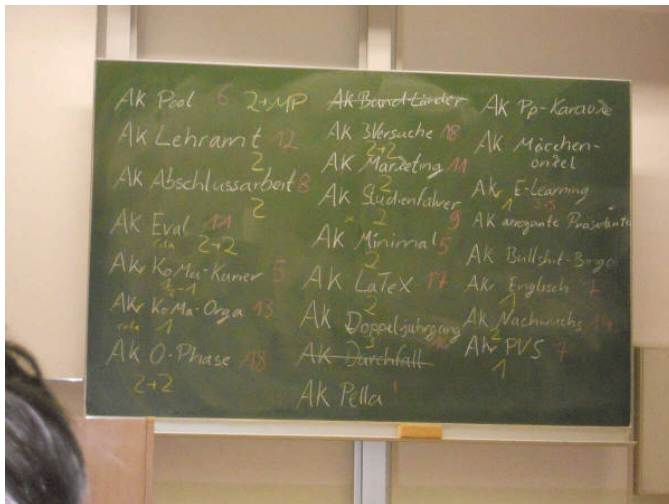 AK Pool 6 2+MP
AK Lehramt 12
2
AK Abschlussarbeit 8
2
AK Eval 11
2+2
AKv KoMa-Kurier 5
AKv KoMa-Orga 13
1
AK O-Phase 18
2+2
AK Bund-Länder
AK 3Versuche 18
2+2
AK Marketing 11
2
AK Studienführer
2 9
AK Minimal 5
2
AK LaTeX 17
2
AK Doppeljahrgang
3
AK Durchfall
AK Pella 1
AK Pp-Karaoke
AK Märchen-
onkel
AKv E-Learning
1
AK arrogante
AK Bullshit-Bingo
AKv Englisch 7
1
AK Nachwuchs 14
2
AKv PVS 7
1